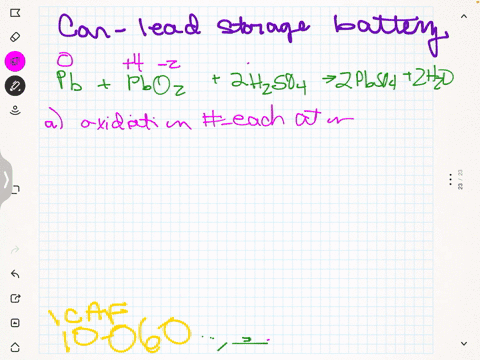 Car - lead storage battery
0 +4 -2
Pb + PbO2 + 2H2SO4 → 2PbSO4 + 2H2O
a) oxidation #= each atom
1CAF
10-060
23 / 23